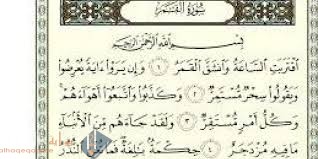 سُورَةُ القَمَرِ
بِسْمِ اللَّهِ الرَّحْمَٰنِ الرَّحِيمِ
اقْتَرَبَتِ السَّاعَةُ وَانشَقَّ الْقَمَرُ ١ وَإِن يَرَوْا ءَايَةً يُعْرِضُوا
وَيَقُولُوا سِحْرٌ مُّسْتَمِرٌّ ٢ وَكَذَّبُوا وَاتَّبَعُوا أَهْوَاءَهُمْ
وَكُلُّ أَمْرٍ مُّسْتَقِرٌّ ٣ وَلَقَدْ جَاءَهُم مِّنَ الْأَنبَاءِ
مَا فِيهِ مُزْدَجَرٌ ٤ حِكْمَةٌ بَالِغَةٌ فَمَا تُغْنِ النُّذُرُ